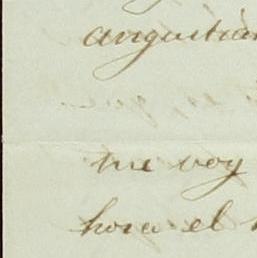 angustian
me voy
hora el